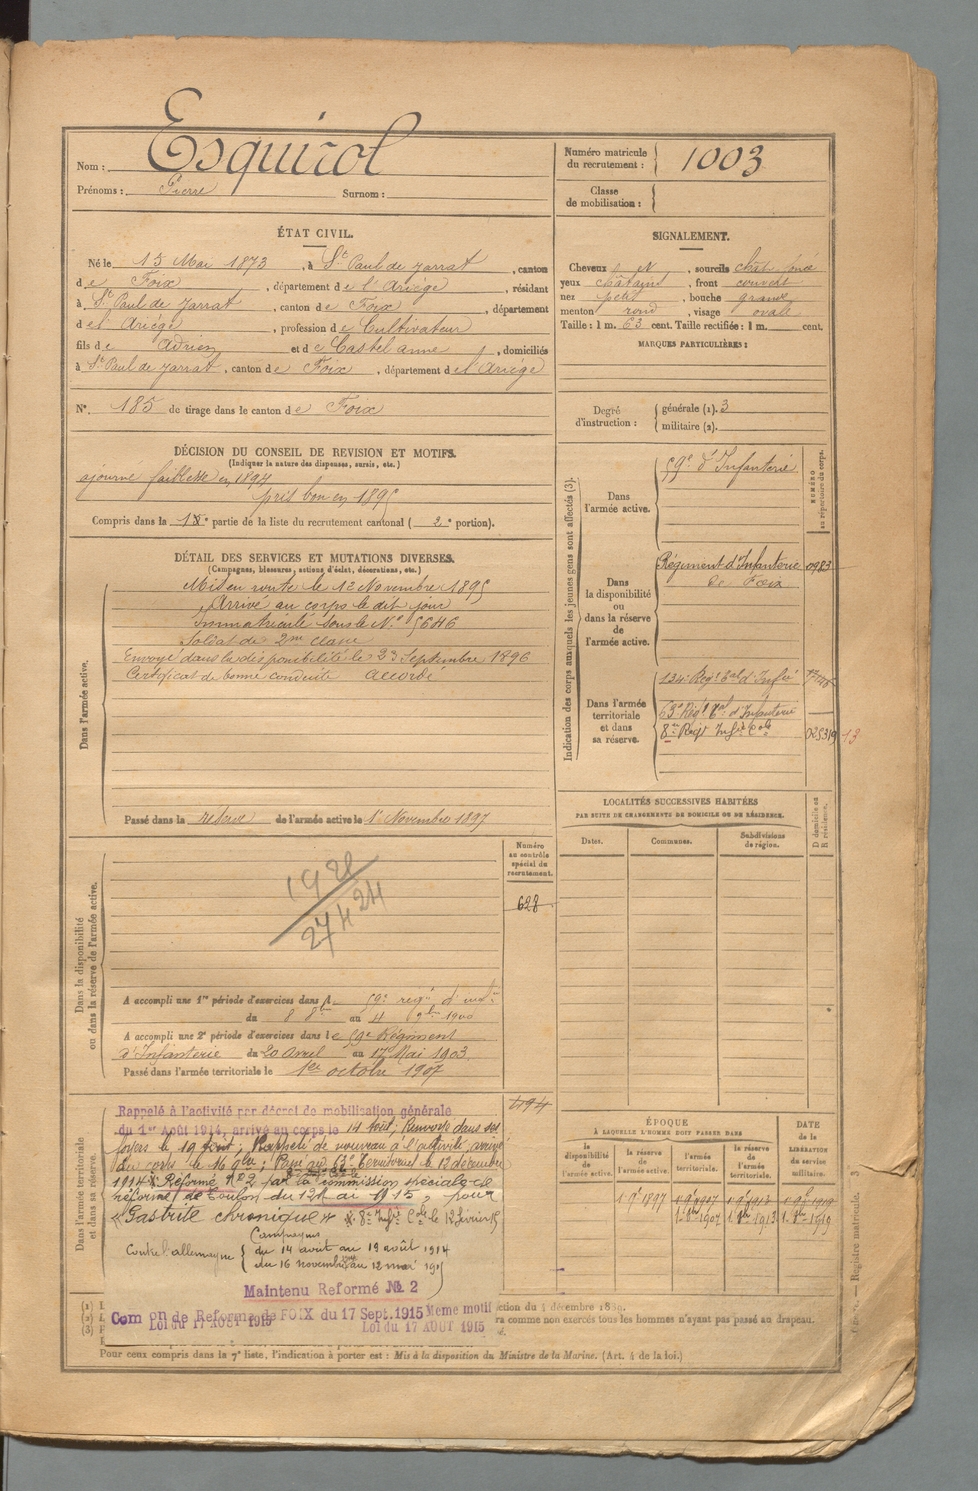 Nom : Esquirol
Prénoms : Pierre Surnom :
Numéro matricule du recrutement : 1003
Classe de mobilisation :
ÉTAT CIVIL.
Né le 15 Mai 1873, à St Paul de Jarrat, canton
de Foix, département de l'Ariège, résidant
à St Paul de Jarrat, canton de Foix, département
de l'Ariège, profession de Cultivateur
fils de Adrien et de Castel anne, domiciliés
à St Paul de Jarrat, canton de Foix, département de l'Ariège
N° 185 de tirage dans le canton de Foix
SIGNALEMENT.
Cheveux , sourcils chât foncé
yeux châtains, front couvert
nez petit, bouche grande
menton rond, visage ovale
Taille : 1 m. 63 cent. Taille rectifiée : 1 m. cent.
MARQUES PARTICULIÈRES :
Degré d'instruction : générale (1). 3
militaire (2).
DÉCISION DU CONSEIL DE REVISION ET MOTIFS.
(Indiquer la nature des dispenses, sursis, etc.)
ajourné faiblesse en 1894
pris bon en 1895
Compris dans la 1re partie de la liste du recrutement cantonal ( 2e portion).
DÉTAIL DES SERVICES ET MUTATIONS DIVERSES.
(Campagnes, blessures, actions d'éclat, décorations, etc.)
Dans l'armée active.
Mis en route le 12 Novembre 1895
Arrivé au corps le dit jour
Immatriculé sous le N° 5646
Soldat de 2me classe
Envoyé dans la disponibilité le 23 Septembre 1896
Certificat de bonne conduite accordé
Passé dans la réserve de l'armée active le 1er Novembre 1897
Indication des corps auxquels les jeunes gens sont affectés (3).
NUMÉRO au répertoire du corps.
Dans l'armée active. 59e d'Infanterie
Dans la disponibilité ou dans la réserve de l'armée active. Régiment d'Infanterie de Foix 0983
Dans l'armée territoriale et dans sa réserve. 134e Régt Eal d'Infie
63e Régt Eal d'Infanterie
8e Régt Infie Cale 025319 13
LOCALITÉS SUCCESSIVES HABITÉES
PAR SUITE DE CHANGEMENTS DE DOMICILE OU DE RÉSIDENCE.
Dates. Communes. Subdivisions de région. D domicile ou R résidence.
Dans la disponibilité ou dans la réserve de l'armée active.
Numéro au contrôle spécial du recrutement.
628
1920
27 4 24
A accompli une 1re période d'exercices dans le 59e regt d'infie
du 8 8bre au 4 9bre 1900
A accompli une 2e période d'exercices dans le 59e Régiment
d'Infanterie du 20 Avril au 17 Mai 1903
Passé dans l'armée territoriale le 1er octobre 1907
Dans l'armée territoriale et dans sa réserve.
1194
Rappelé à l'activité par décret de mobilisation générale
du 1er Août 1914, arrivé au corps le 14 août; Renvoyé dans ses
foyers le 19 août; Rappelé de nouveau à l'activité, arrivé
au corps le 16 9bre; Passé au 63e Territorial le 12 décembre
1914 Réformé N° 2 par la commission spéciale de
réforme de Toulon du 12 Mai 1915, pour
« Gastrite chronique » 8e Infie Cale le 12 février 15
Campagnes
Contre l'allemagne du 14 août au 19 août 1914
du 16 novembre au 12 mai 1915
Maintenu Reformé № 2
Com on de Reforme de FOIX du 17 Sept. 1915 Meme motif
Loi du 17 AOUT 1915 Loi du 17 AOUT 1915
ÉPOQUE
À LAQUELLE L'HOMME DOIT PASSER DANS
la disponibilité de l'armée active. la réserve de l'armée active. l'armée territoriale. la réserve de l'armée territoriale.
DATE de la LIBÉRATION du service militaire.
1 9e 1897 1 9e 1907 1 9e 1913 1 9e 1919
1 8bre 1907 1 8bre 1913 1 8bre 1919
(1)
(2)
(3)
ction du 4 décembre 1889.
ra comme non exercés tous les hommes n'ayant pas passé au drapeau.
Pour ceux compris dans la 7e liste, l'indication à porter est : Mis à la disposition du Ministre de la Marine. (Art. 4 de la loi.)
— Registre matricule. 3